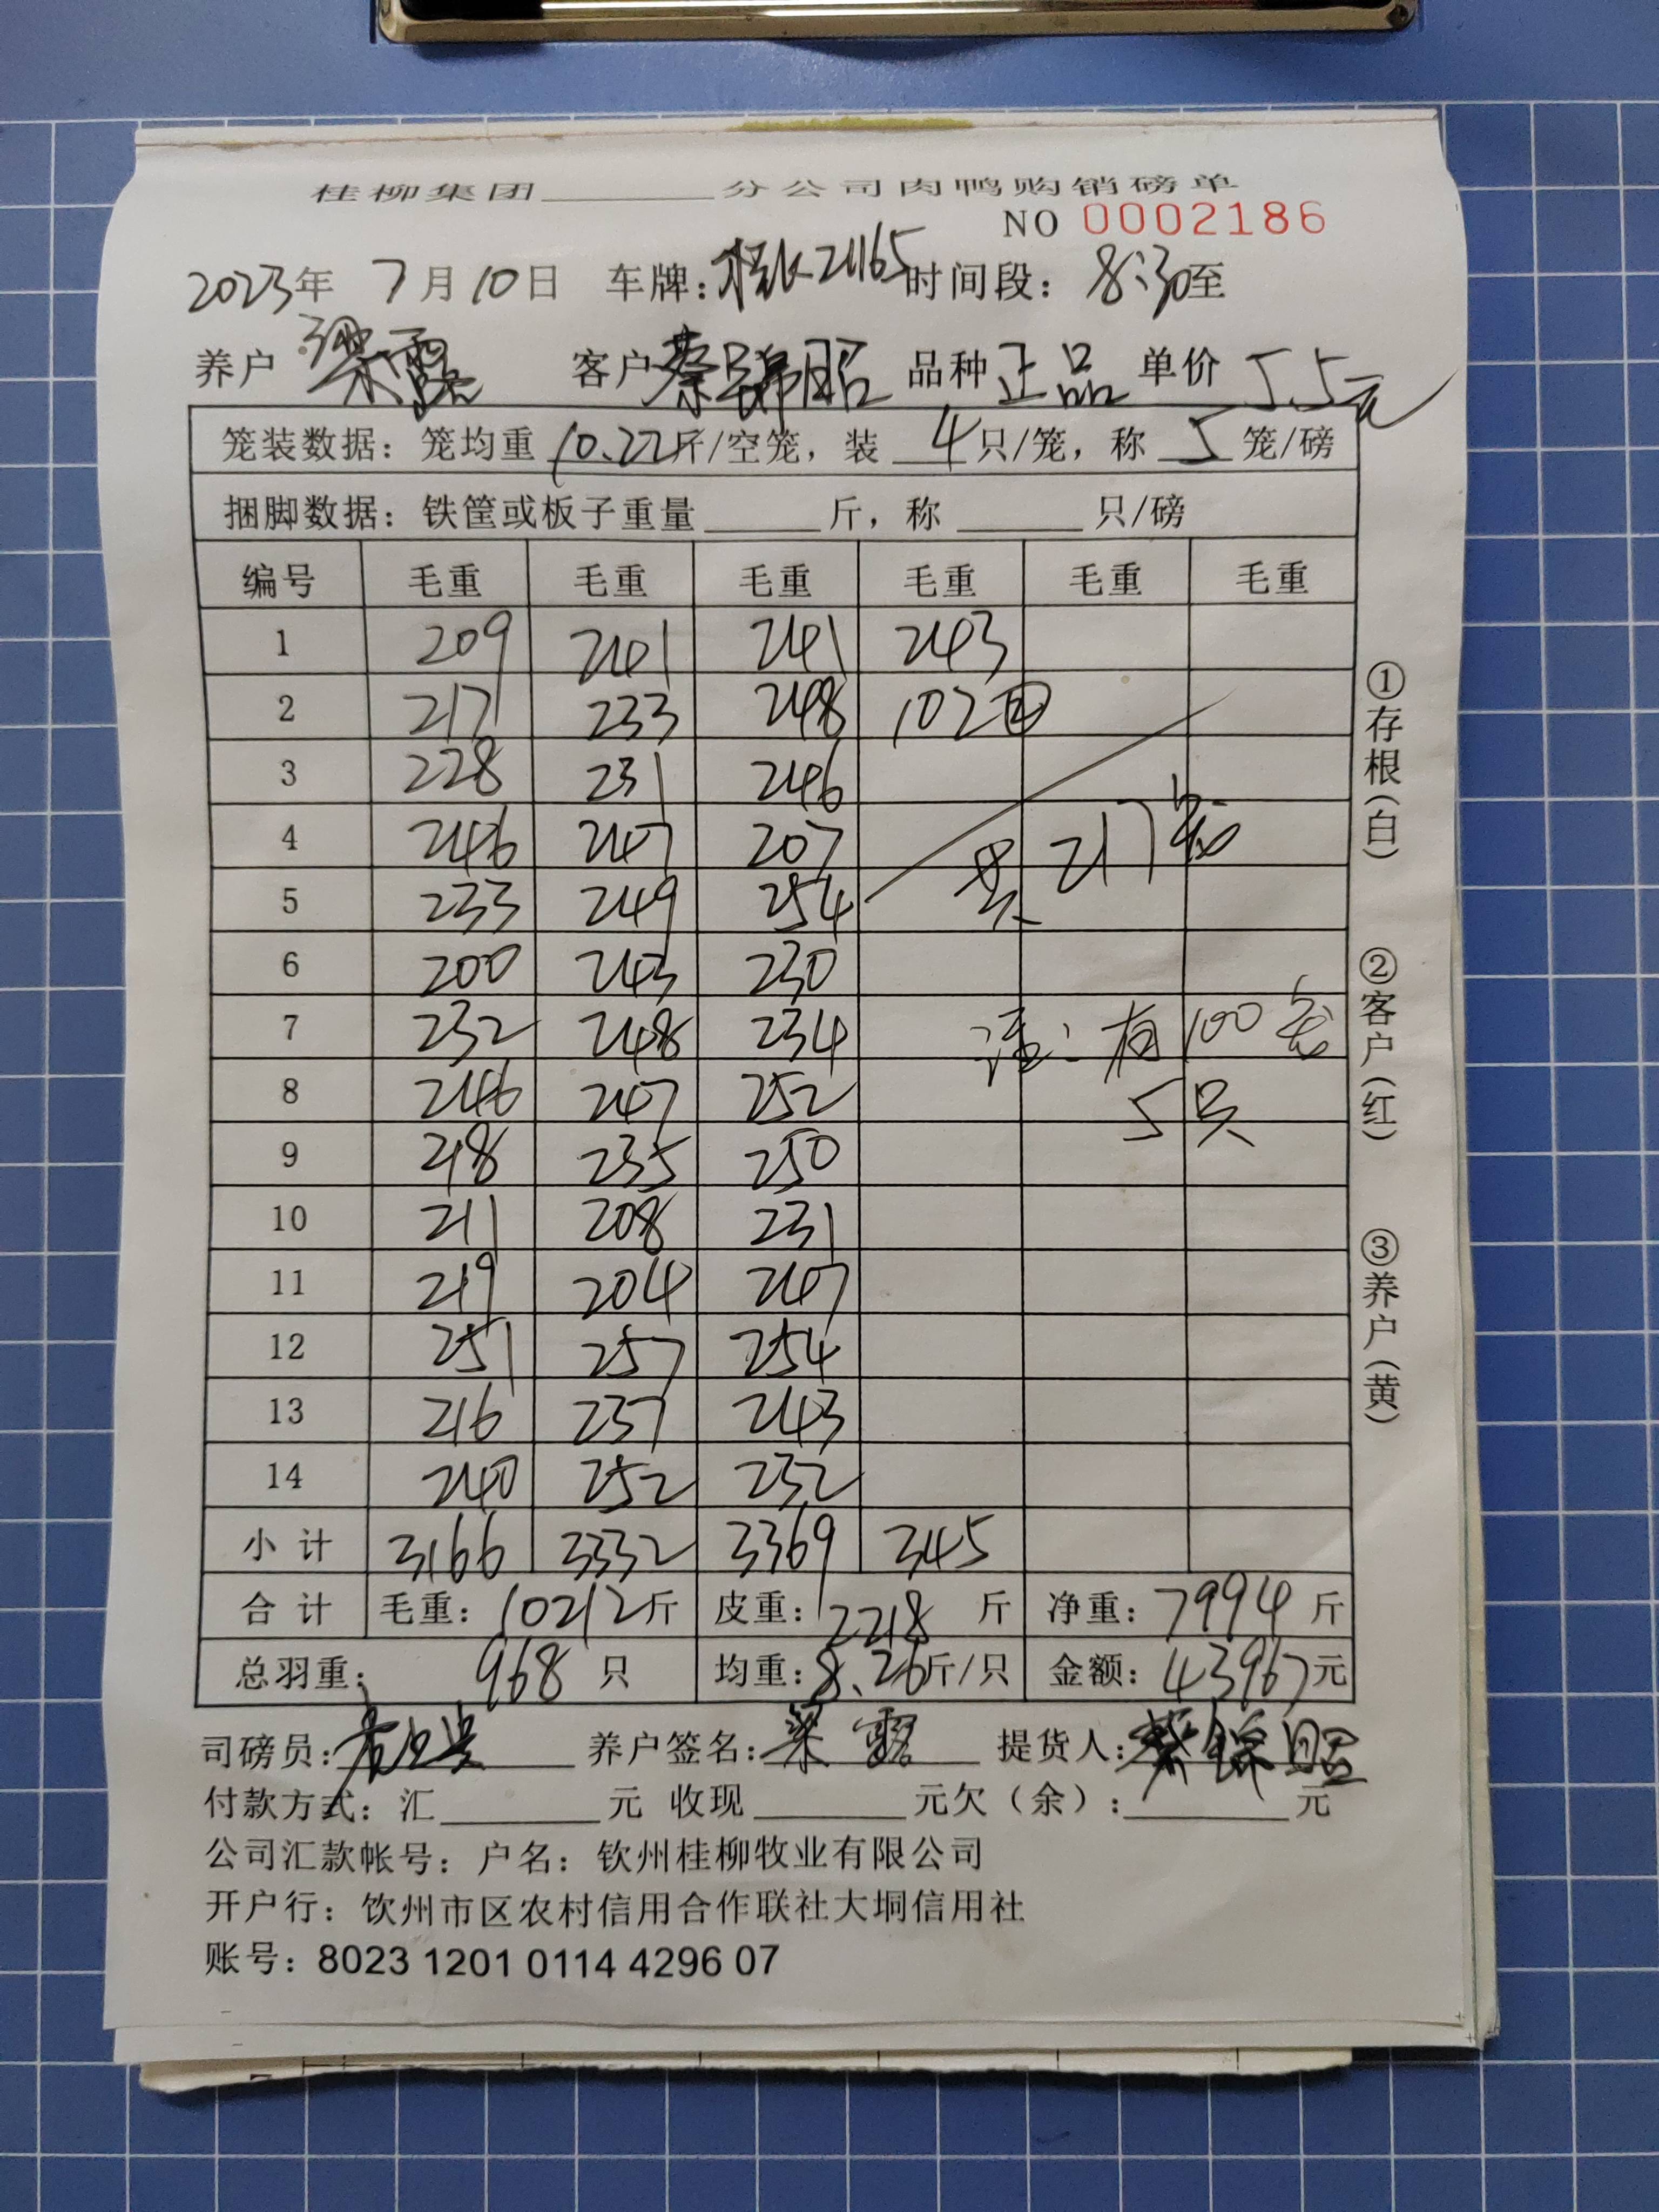 桂柳集团______分公司肉鸭购销磅单
NO 0002186
2023年 7月10日 车牌:桂K21165 时间段: 8:30至
养户 梁露 客户 蔡锦昭 品种 正品 单价 5.5元
笼装数据: 笼均重 10.22斤/空笼, 装 4只/笼, 称 5 笼/磅
捆脚数据: 铁筐或板子重量______斤, 称______只/磅
编号 毛重 毛重 毛重 毛重 毛重 毛重
1 209 241 241 243
2 217 233 248 102②
3 228 231 246
4 246 247 207 共217笼
5 233 249 254
6 200 243 230
7 232 248 234 注:有100笼
8 246 247 252 5只
9 218 235 250
10 211 208 231
11 219 204 247
12 251 257 254
13 216 237 243
14 240 252 232
小计 3166 3332 3369 345
合计 毛重: 10212斤 皮重: 2218 斤 净重: 7994 斤
总羽重: 968 只 均重: 8.26斤/只 金额: 43967元
司磅员: 养户签名: 梁露 提货人: 蔡锦昭
付款方式: 汇______元 收现______元欠(余):______元
公司汇款帐号: 户名: 钦州桂柳牧业有限公司
开户行: 钦州市区农村信用合作联社大垌信用社
账号: 8023 1201 0114 4296 07
①存根(白)
②客户(红)
③养户(黄)